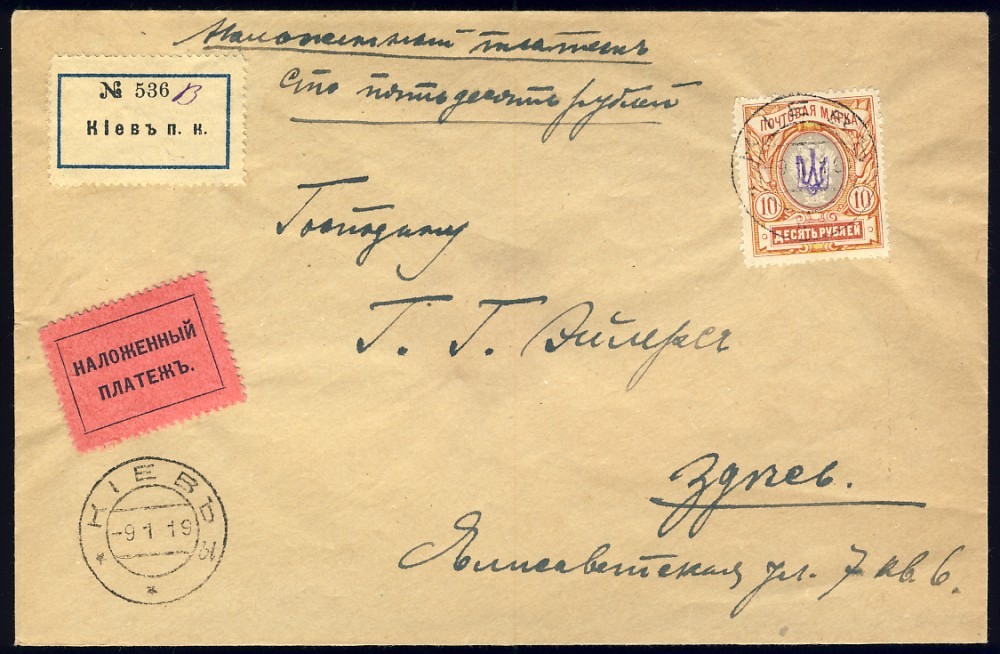 Наложенный платежъ
Сто пятьдесять рублей
№ 536 В
Кіевъ п. к.
ПОЧТОВАЯ МАРКА
10 10
ДЕСЯТЬ РУБЛЕЙ
Господину
Г. Г. Эйлерсъ
НАЛОЖЕННЫЙ
ПЛАТЕЖЪ.
Здѣсь.
Елисаветская ул. 7 кв 6.
КІЕВЪ
-9 1 19
Ы